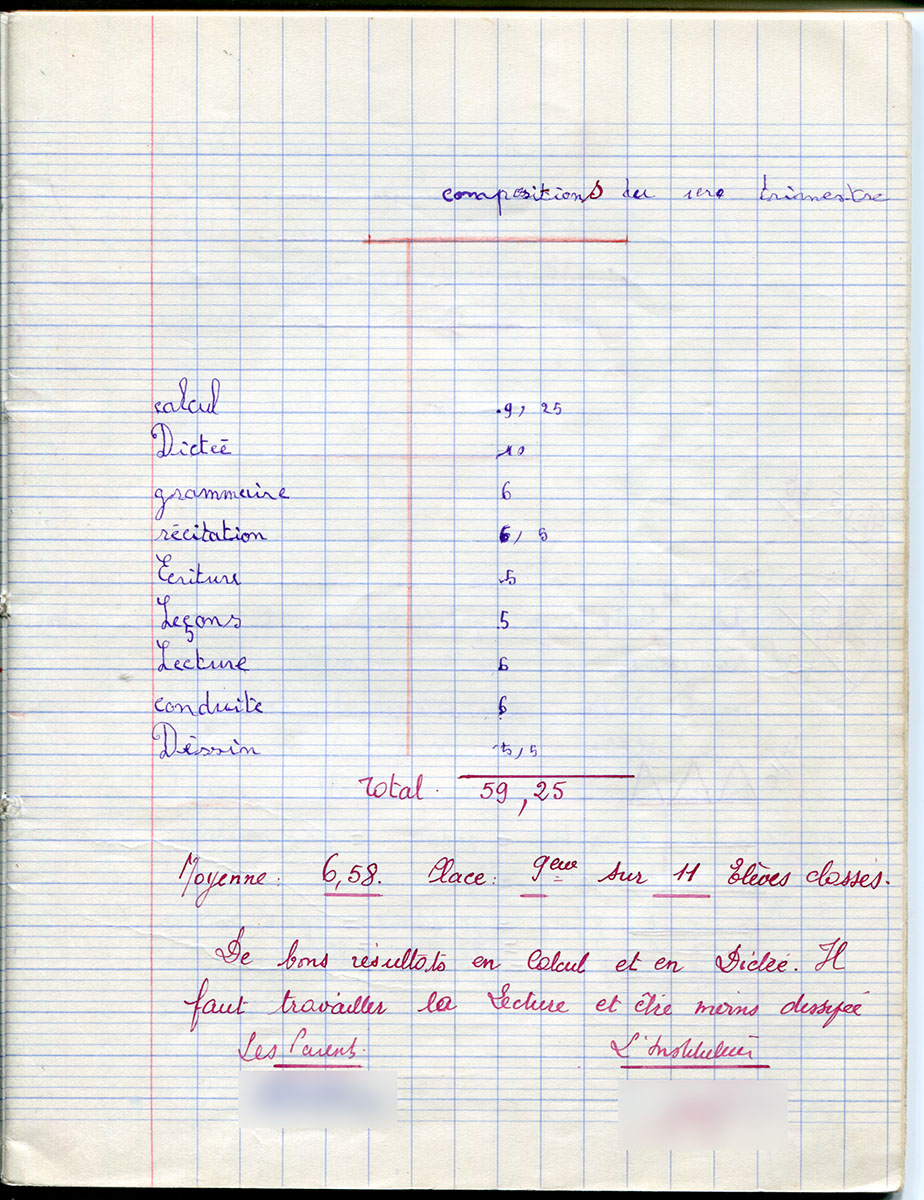 compositions du 1ere trimestre
calcul 9, 25
Dicteé 10
grammaire 6
récitation 6, 5
Ecriture 5
Leçons 5
Lecture 6
conduite 6
Déssin 5,5
Total. 59,25
Moyenne: 6,58. Place: 9eme sur 11 Elèves classés.
De bons résultats en Calcul et en Dictée. Il
faut travailler la Lecture et être moins dissipée
Les Parents. L'Instituteur